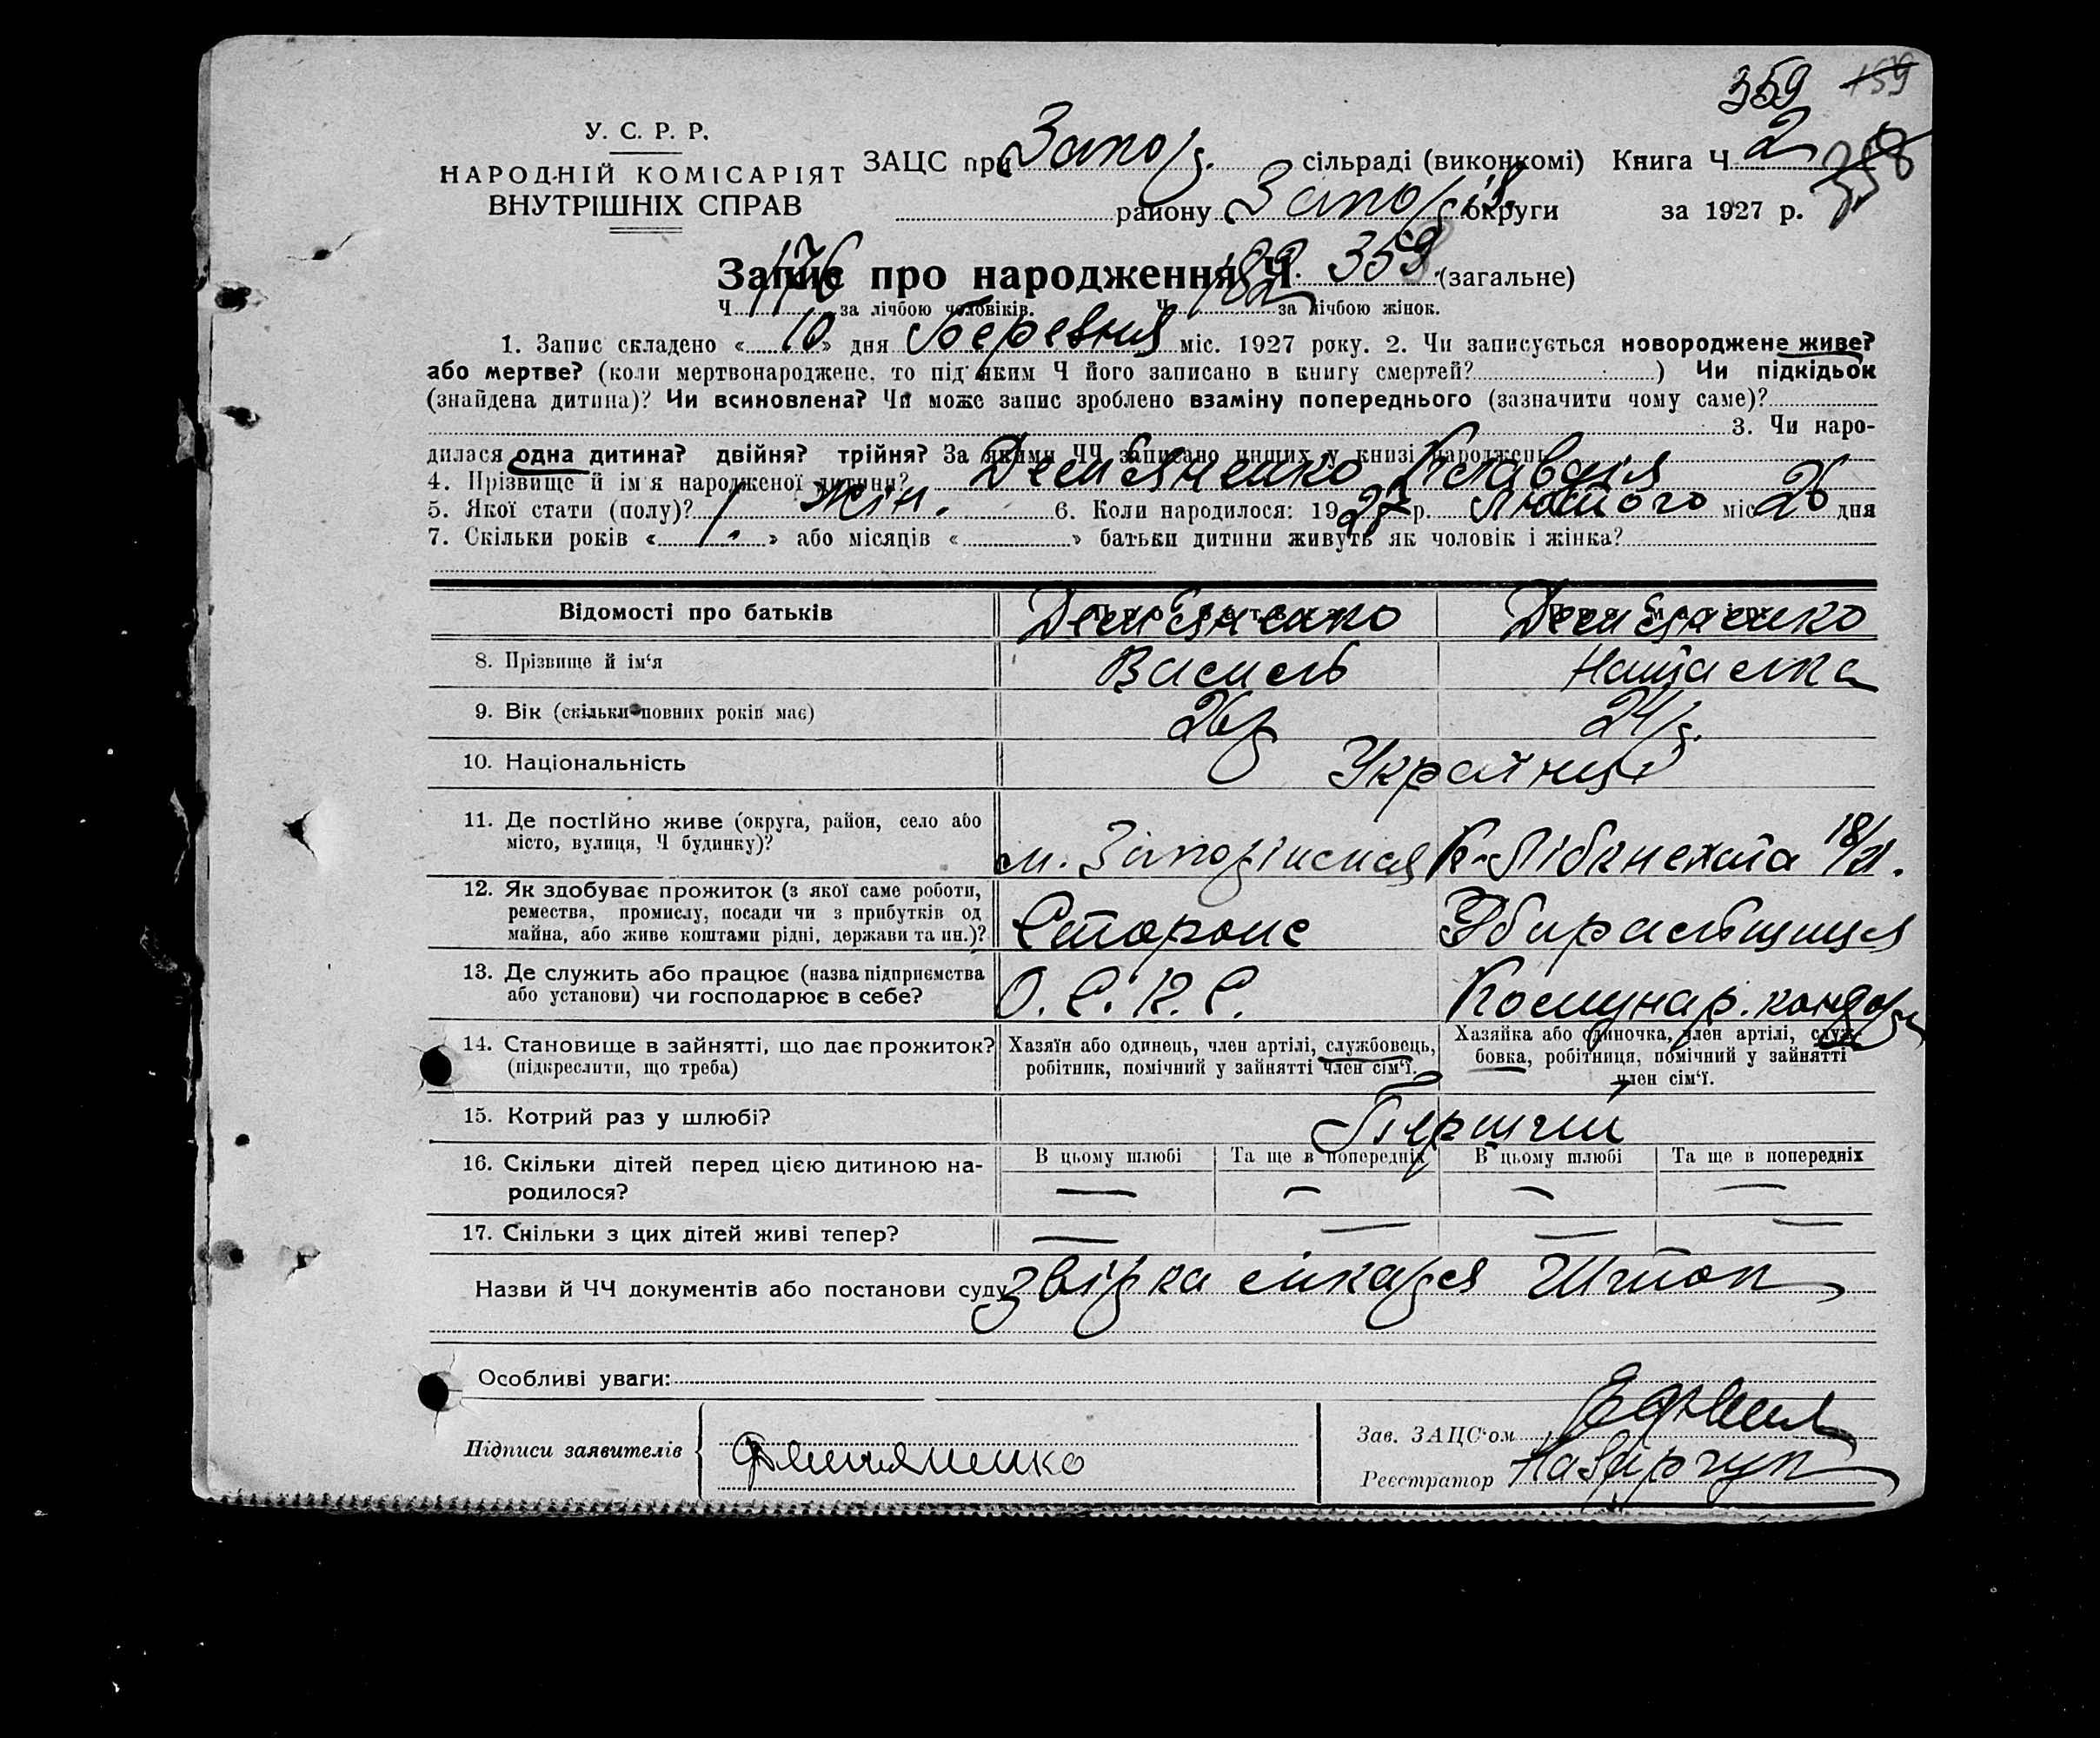 359 159
У. С. Р. Р.
НАРОДНІЙ КОМІСАРІЯТ
ВНУТРІШНІХ СПРАВ
ЗАЦС при Запоріз. сільраді (виконкомі) Книга Ч 2
358
району Запоріз. округи за 1927 р.
Запис про народження Ч. 359 (загальне)
Ч 176 за лічбою чоловіків. Ч 182 за лічбою жінок.
1. Запис складено « 10 » дня Березня міс. 1927 року. 2. Чи записується новороджене живе?
або мертве? (коли мертвонароджене, то під яким Ч його записано в книгу смертей? ) Чи підкідьок
(знайдена дитина)? Чи всиновлена? Чи може запис зроблено взаміну попереднього (зазначити чому саме)?
3. Чи наро-
дилася одна дитина? двійня? трійня? За якими ЧЧ записано инших у книзі народжень
4. Прізвище й ім'я народженої дитини? Дем'яненко Клавдія
5. Якої стати (полу)? жін. 6. Коли народилося: 1927 р. Лютого міс 26 дня
7. Скільки років « 1. » або місяців « » батьки дитини живуть як чоловік і жінка?
Відомості про батьків Дем'яненко Дем'яненко
8. Прізвище й ім'я Василь Наталка
9. Вік (скільки повних років має) 26 р 24 р.
10. Національність Українці
11. Де постійно живе (округа, район, село або
місто, вулиця, Ч будинку)? м. Запоріжжя К-Лібкнехта 18/21.
12. Як здобуває прожиток (з якої саме роботи,
ремества, промислу, посади чи з прибутків од
майна, або живе коштами рідні, держави та ин.)? Сторож Збиральщиця
13. Де служить або працює (назва підприємства
або установи) чи господарює в себе? О.С.К.С. Комунар.
14. Становище в зайнятті, що дає прожиток?
(підкреслити, що треба)
Хазяїн або одинець, член артілі, службовець,
робітник, помічний у зайнятті член сім'ї.
Хазяйка або одиночка, член артілі, служ-
бовка, робітниця, помічний у зайнятті
член сім'ї.
15. Котрий раз у шлюбі? Перший
16. Скільки дітей перед цією дитиною на-
родилося?
В цьому шлюбі Та ще в попередніх В цьому шлюбі Та ще в попередніх
— — — —
17. Скільки з цих дітей живі тепер? — — — —
Назви й ЧЧ документів або постанови суду
Особливі уваги:
Підписи заявителів Демяненко
Зав. ЗАЦС'ом
Реєстратор